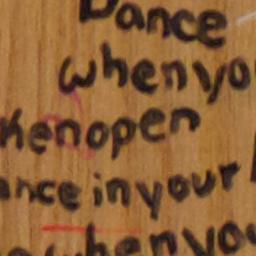 Dance
when yo
ken open
ance in your
when you